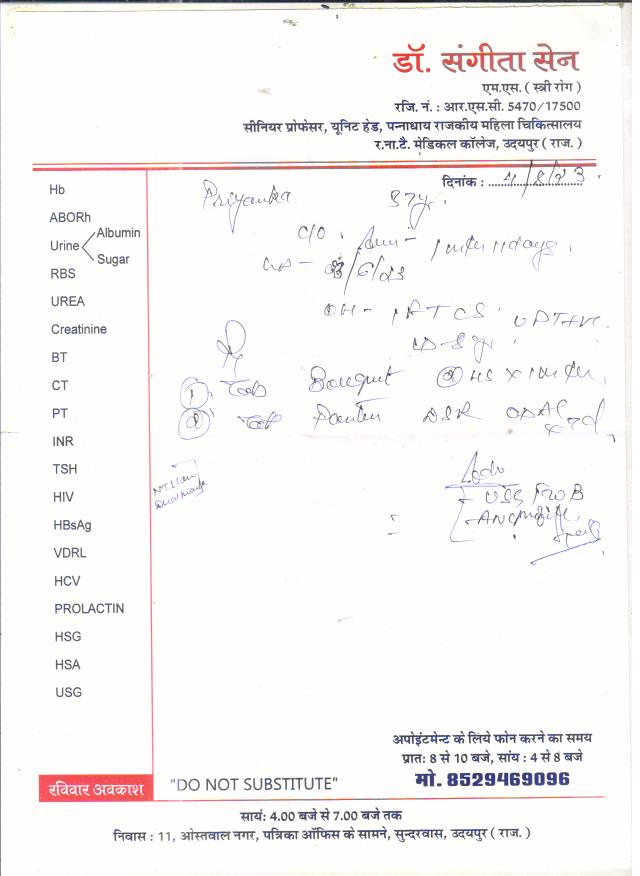 डॉ. संगीता सेन
एम.एस. ( स्त्री रोग )
रजि. नं. : आर.एस.सी. 5470/17500
सीनियर प्रोफेसर, यूनिट हेड, पन्नाधाय राजकीय महिला चिकित्सालय
र.ना.टै. मेडिकल कॉलेज, उदयपुर ( राज. )
दिनांक : 4/8/23
Priyanka 37y.
C/O. Amm-
OH-
① Tab HS x
② Tab DSR ODAC
x 7d
Adv
- USG FWB
- ANC profile
NT Scan
Dual marker
Hb
ABORh
Urine Albumin
Sugar
RBS
UREA
Creatinine
BT
CT
PT
INR
TSH
HIV
HBsAg
VDRL
HCV
PROLACTIN
HSG
HSA
USG
अपोइंटमेन्ट के लिये फोन करने का समय
प्रातः 8 से 10 बजे, सांय : 4 से 8 बजे
मो. 8529469096
रविवार अवकाश
"DO NOT SUBSTITUTE"
सायं: 4.00 बजे से 7.00 बजे तक
निवास : 11, ओस्तवाल नगर, पत्रिका ऑफिस के सामने, सुन्दरवास, उदयपुर ( राज. )